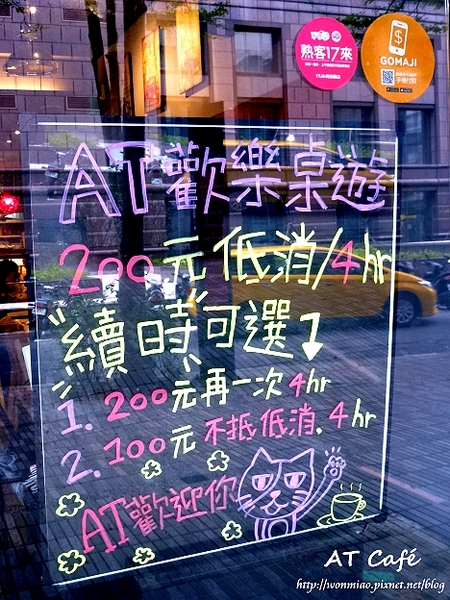 熟客17來
GOMAJI
AT歡樂桌遊
200元低消/4hr
續時可選
1. 200元再一次4hr
2. 100元不抵低消. 4hr
AT歡迎你
AT Café
http://wonmiao.pixnet.net/blog